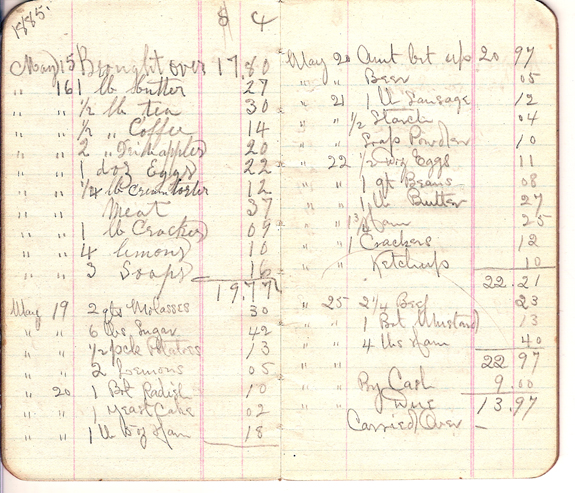 1885.
$ ¢
May 15 Brought over 17.80
" 16 1 lb butter 27
½ lb tea 30
½ " Coffee 14
2 " Pinapples 20
1 doz Eggs 22
¼ lb creamtarter 12
Meat 37
1 lb Crackers 09
4 lemons 10
3 Soaps 16
19.77
May 19 2 qts Molasses 30
" " 6 lbs Sugar 42
" " ½ peck Potatoes 13
" " 2 Lemons 05
" 20 1 Bot Radish 10
" " 1 Yeast Cake 02
" " 1 lb Ham 18
May 20 Amt brt up 20.97
" " Beer 05
" 21 1 lb Sausage 12
" " ½ Starch 04
" " Soap Powder 10
" 22 ½ Doz Eggs 11
" " 1 qt Beans 08
" " 1 lb Butter 27
" " 1¾ Ham 25
" " 1 Crackers 12
" " Ketchup 10
22.21
" 25 2¼ Beef 23
" " 1 Bot Mustard 13
" " 4 lbs Ham 40
22 97
" " By Cash 9.00
" " Due 13.97
Carried Over –